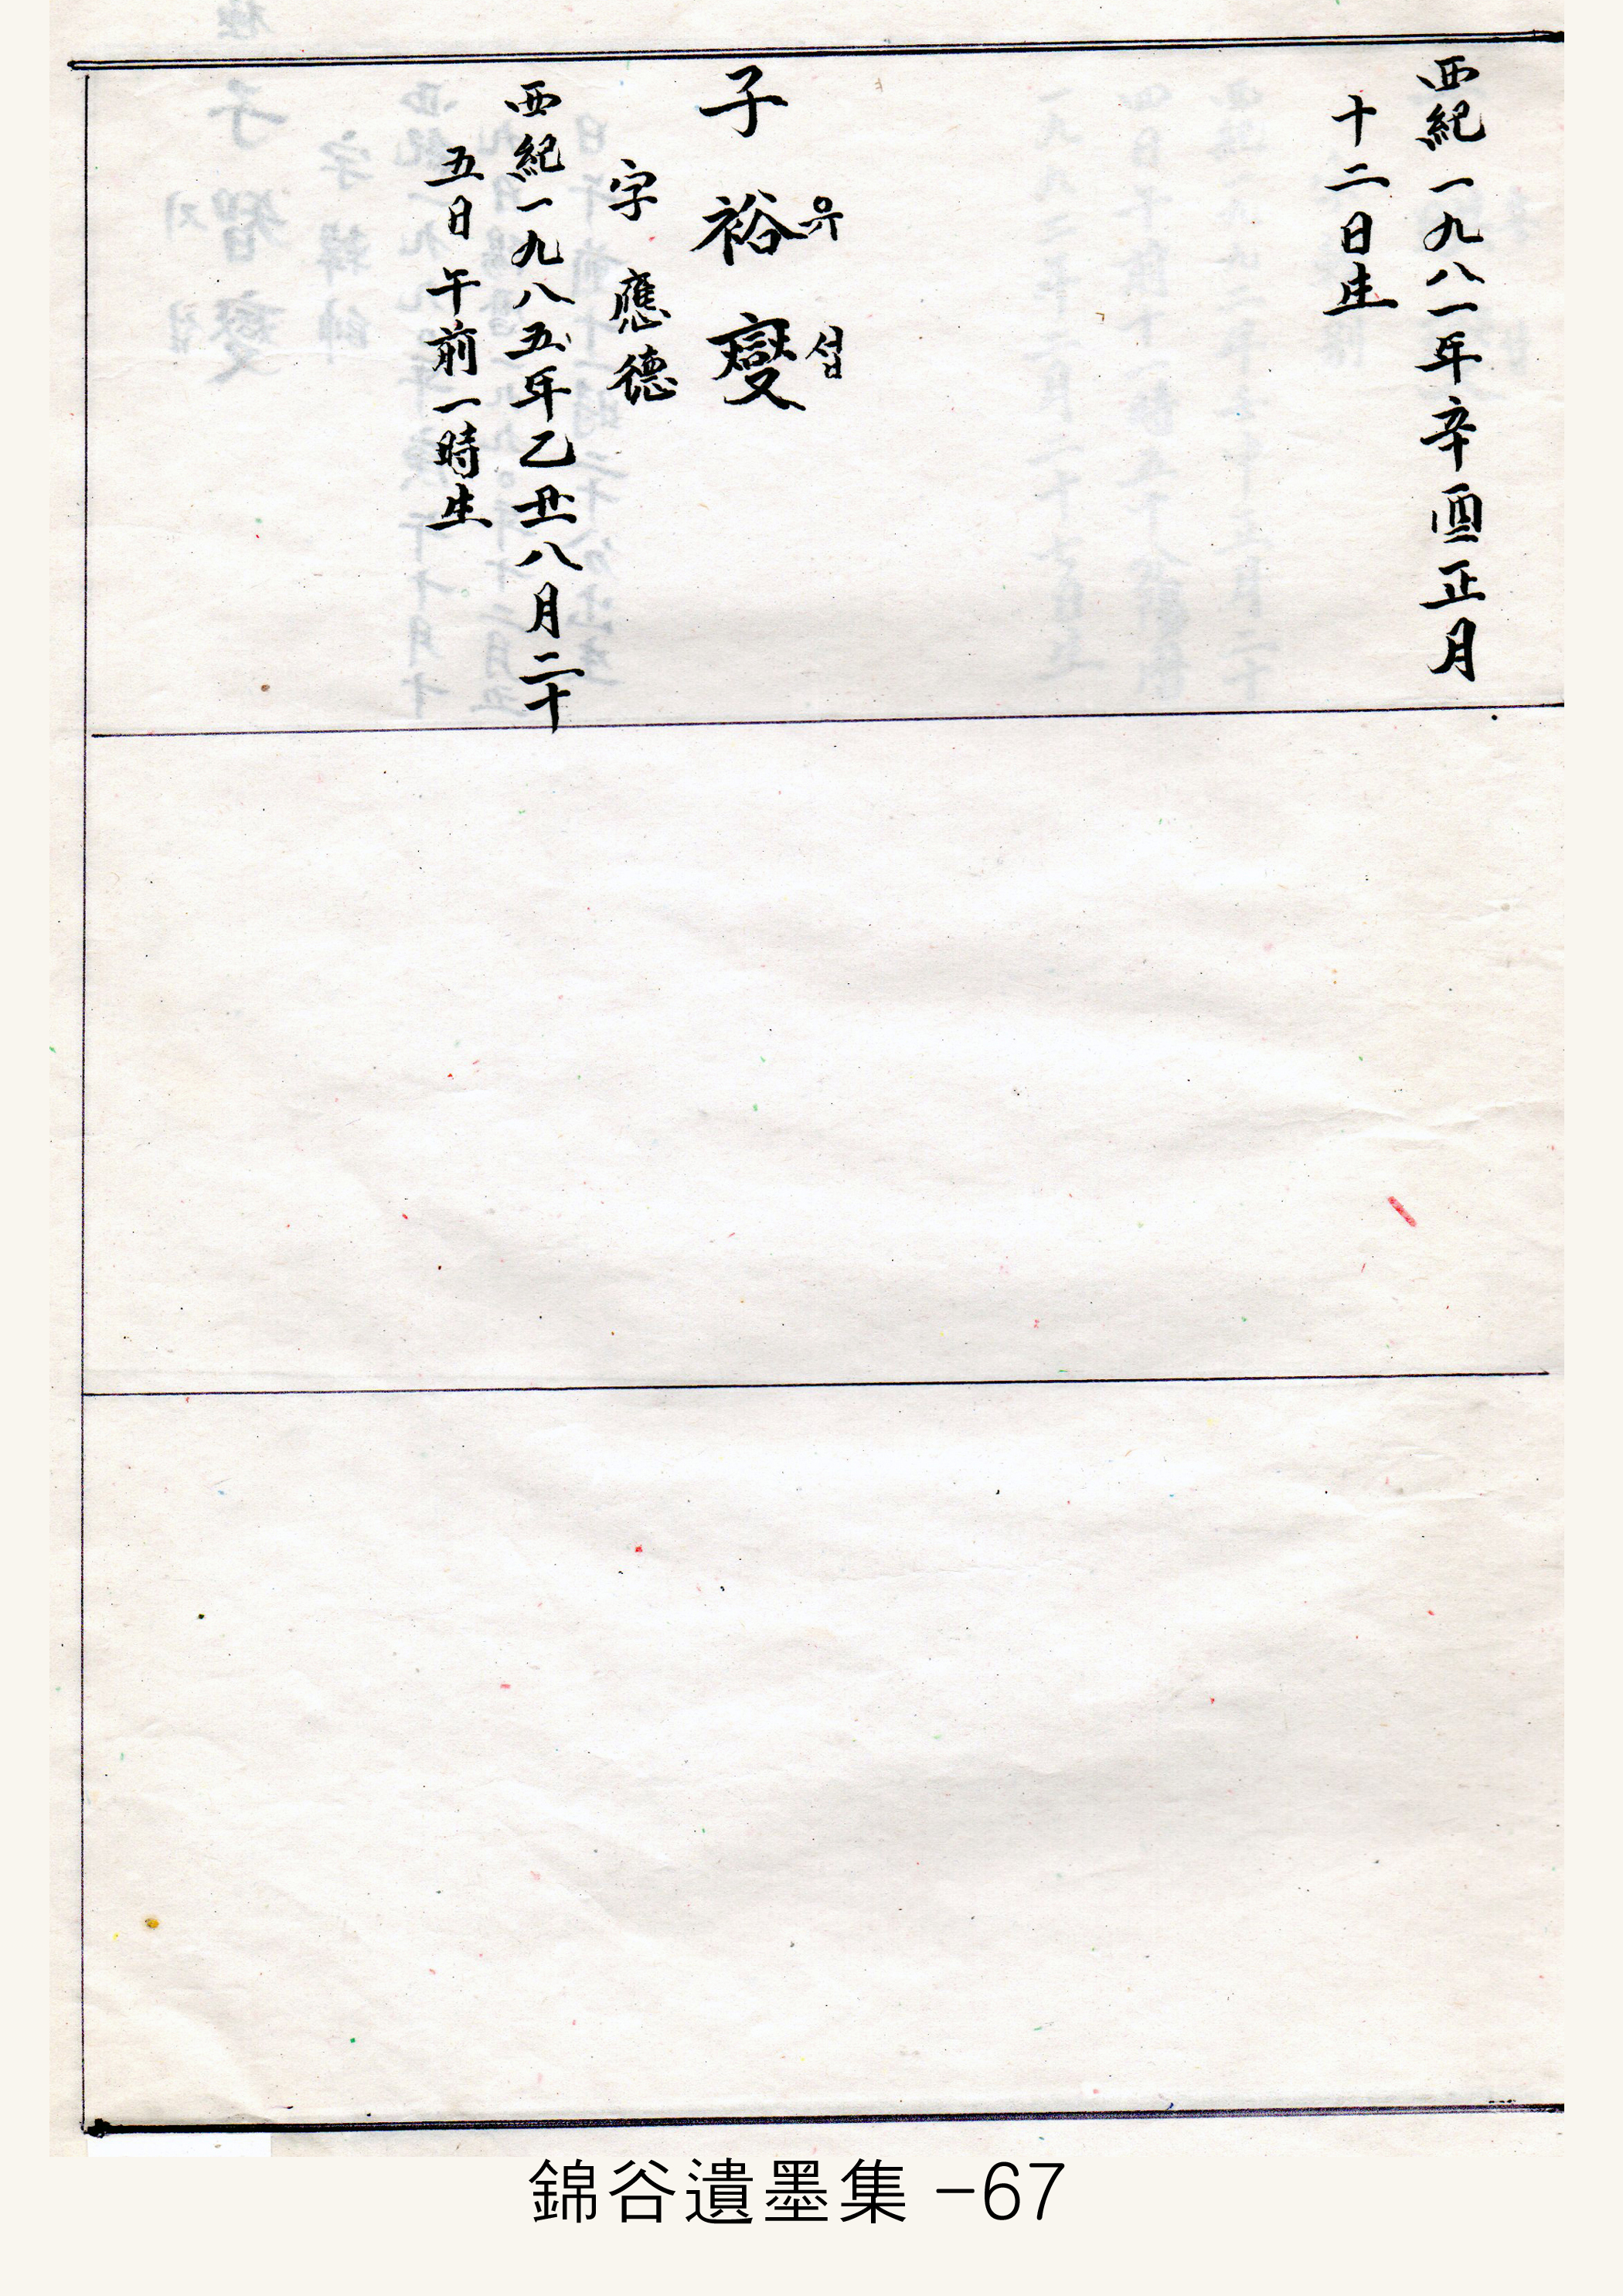 西紀一九八一年辛酉正月
十二日生
子裕變
유섭
字應德
西紀一九八五年乙丑八月二十
五日午前一時生
錦谷遺墨集 -67